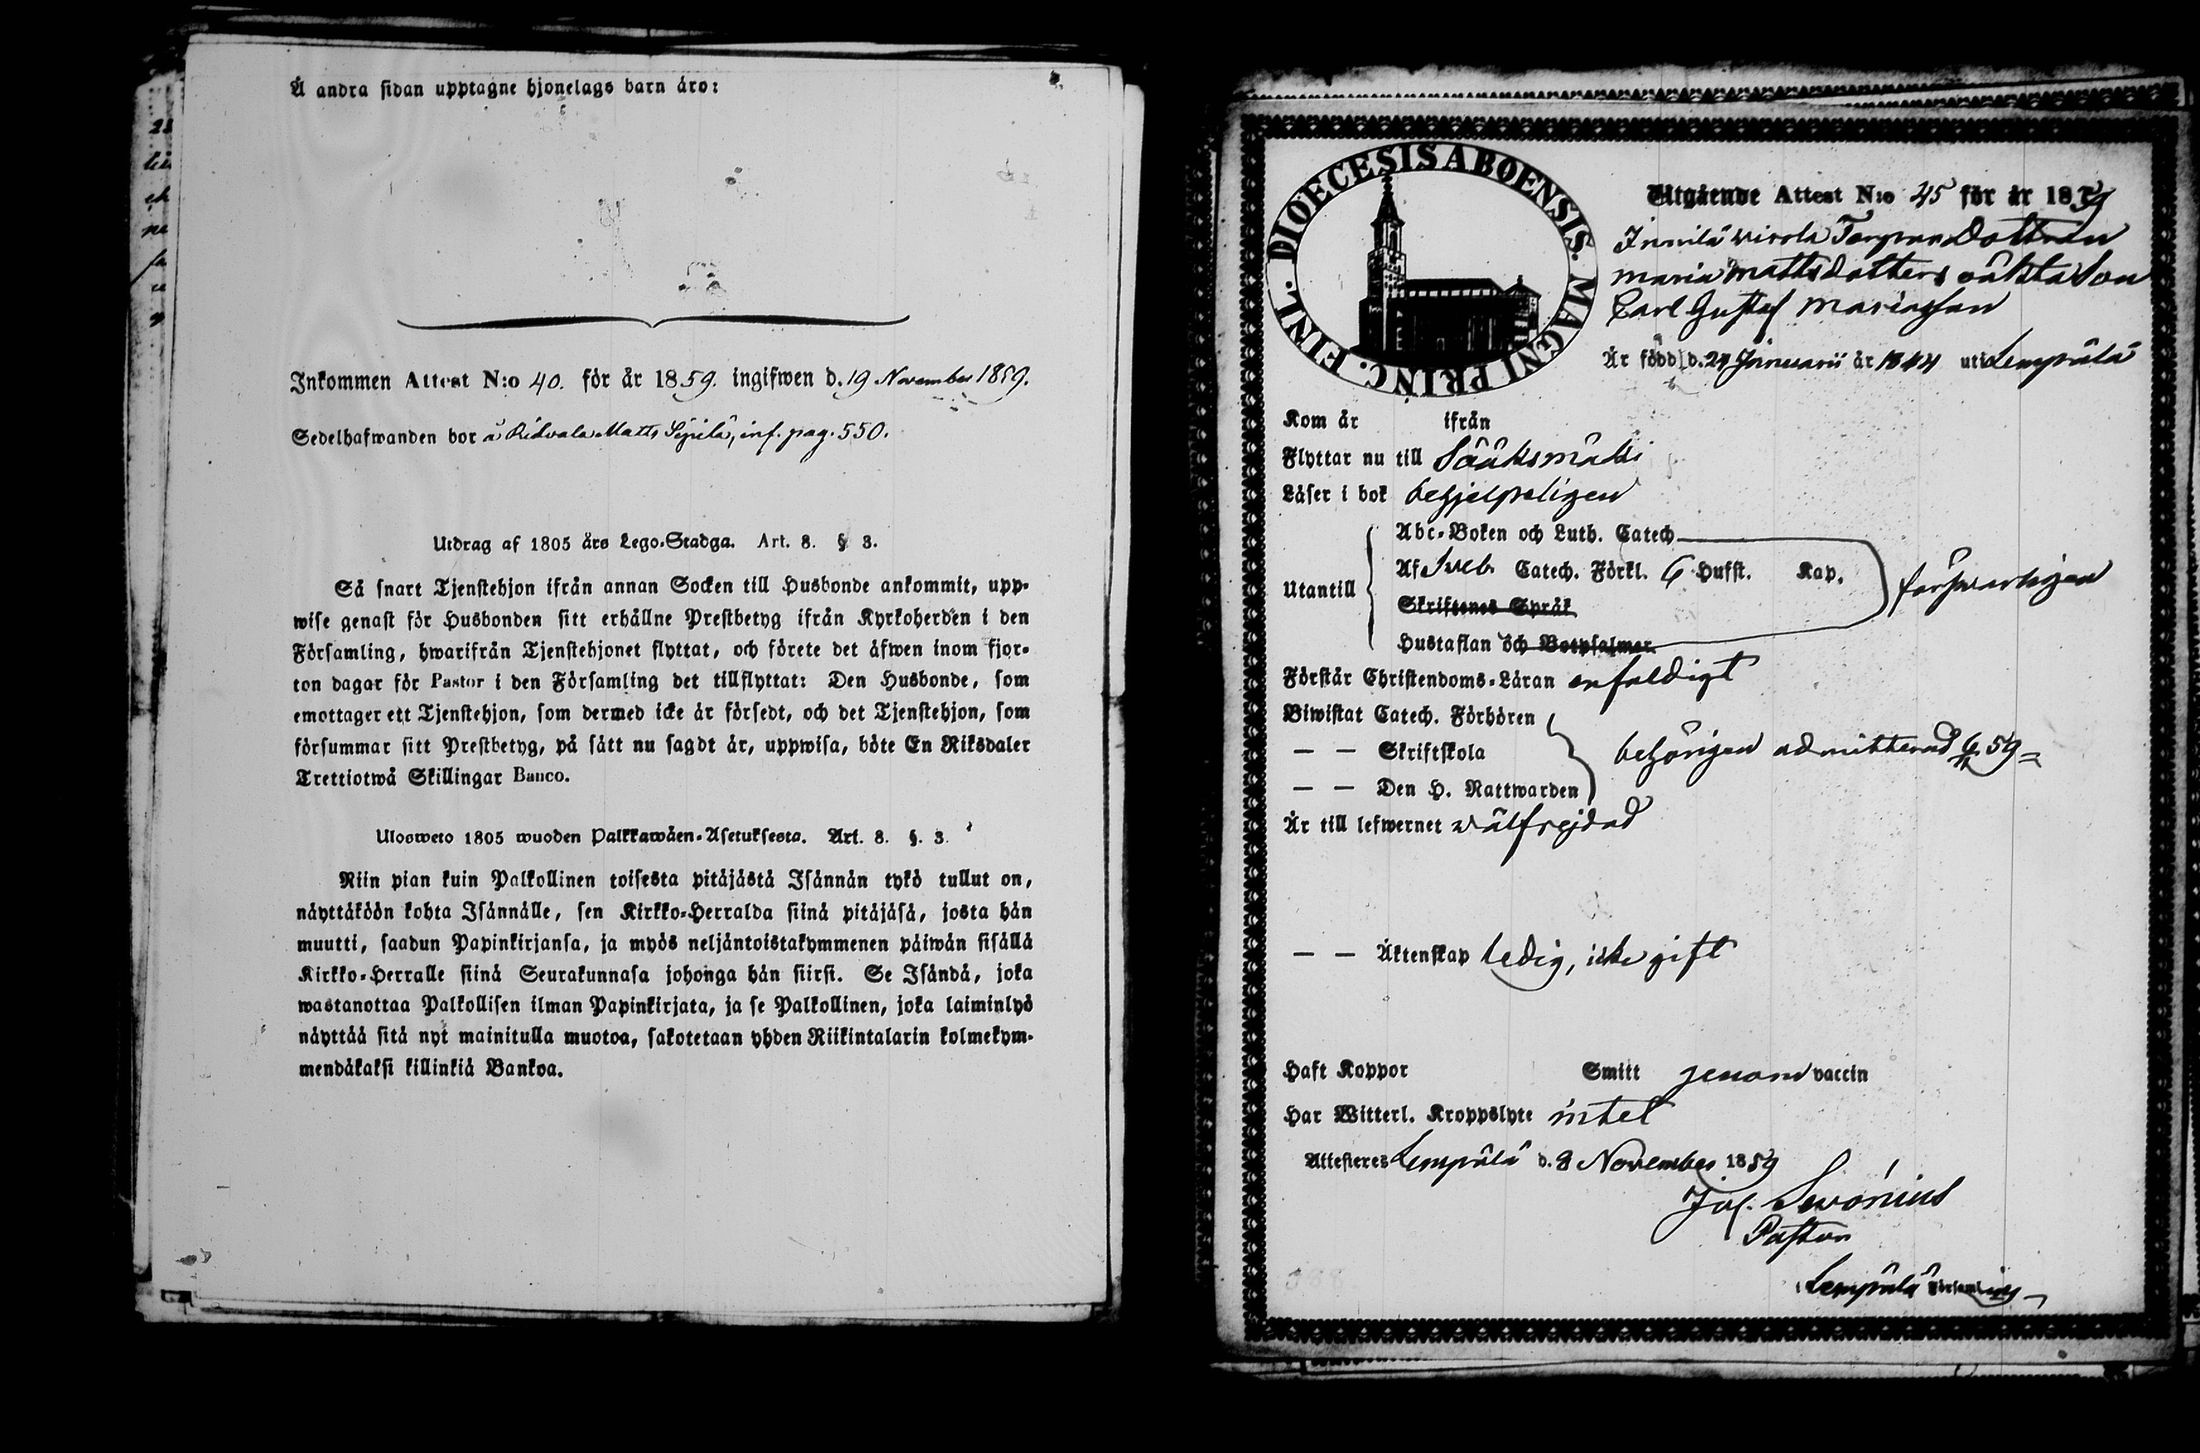 Å andra sidan upptagne hjonelags barn äro:
Inkommen Attest N:o 40. för år 1859. ingifwen d. 19 November 1859.
Sedelhafwanden bor å Ridvala Matts Seppilä, inf. pag. 550.
Utdrag af 1805 års Lego-Stadga. Art. 8. § 3.
Så snart Tjenstehjon ifrån annan Socken till Husbonde ankommit, upp-
wise genast för Husbonden sitt erhållne Prestbetyg ifrån Kyrkoherden i den
Församling, hwarifrån Tjenstehjonet flyttat, och förete det äfwen inom fjor-
ton dagar för Pastor i den Församling det tillflyttat: Den Husbonde, som
emottager ett Tjenstehjon, som dermed icke är försedt, och det Tjenstehjon, som
försummar sitt Prestbetyg, på sätt nu sagdt är, uppwisa, böte En Riksdaler
Trettiotwå Skillingar Banco.
Ulosweto 1805 wuoden Palkkawäen-Asetuksesta. Art. 8. §. 3.
Niin pian kuin Palkollinen toisesta pitäjästä Isännän tykö tullut on,
näyttäköön kohta Isännälle, sen Kirkko-Herralda siinä pitäjäsä, josta hän
muutti, saadun Papinkirjansa, ja myös neljäntoistakymmenen päiwän sisällä
Kirkko-Herralle siinä Seurakunnasa johonga hän siirsi. Se Isändä, joka
wastanottaa Palkollisen ilman Papinkirjata, ja se Palkollinen, joka laiminlyö
näyttää sitä nyt mainitulla muotoa, sakotetaan yhden Riikintalarin kolmekym-
mendäkaksi killinkiä Bankoa.
DIOECESIS ABOENSIS. MAGNI PRINC. FINL.
Utgående Attest N:o 45 för år 1859
Innilä Torpare Dottren
Maria Mattsdotters oäkta Son
Carl Gustaf Mariasson
Är född d. 24 Januarii år 1844 uti Lempälä
Kom år ifrån
Flyttar nu till Sääksmäki
Läser i bok behjelpeligen
Utantill
Abc-Boken och Luth. Catech
Af Sveb. Catech. Förkl. 6 Hufst. Kap.
Skriftenes Språk
Hustaflan och Botpsalmer.
försvarligen
Förstår Christendoms-Läran enfaldigt
Biwistat Catech. Förhören
— — Skriftskola
— — Den H. Nattwarden
behörigen admitterad 59
Är till lefwernet välfrejdad
— — Äktenskap ledig, icke gift
Haft Koppor Smitt genom vaccin
Har Witterl. Kroppslyte intet
Attesteres Lempälä d. 8 November 1859
Jos. Sevonius
Pastor
i Lempälä Församling